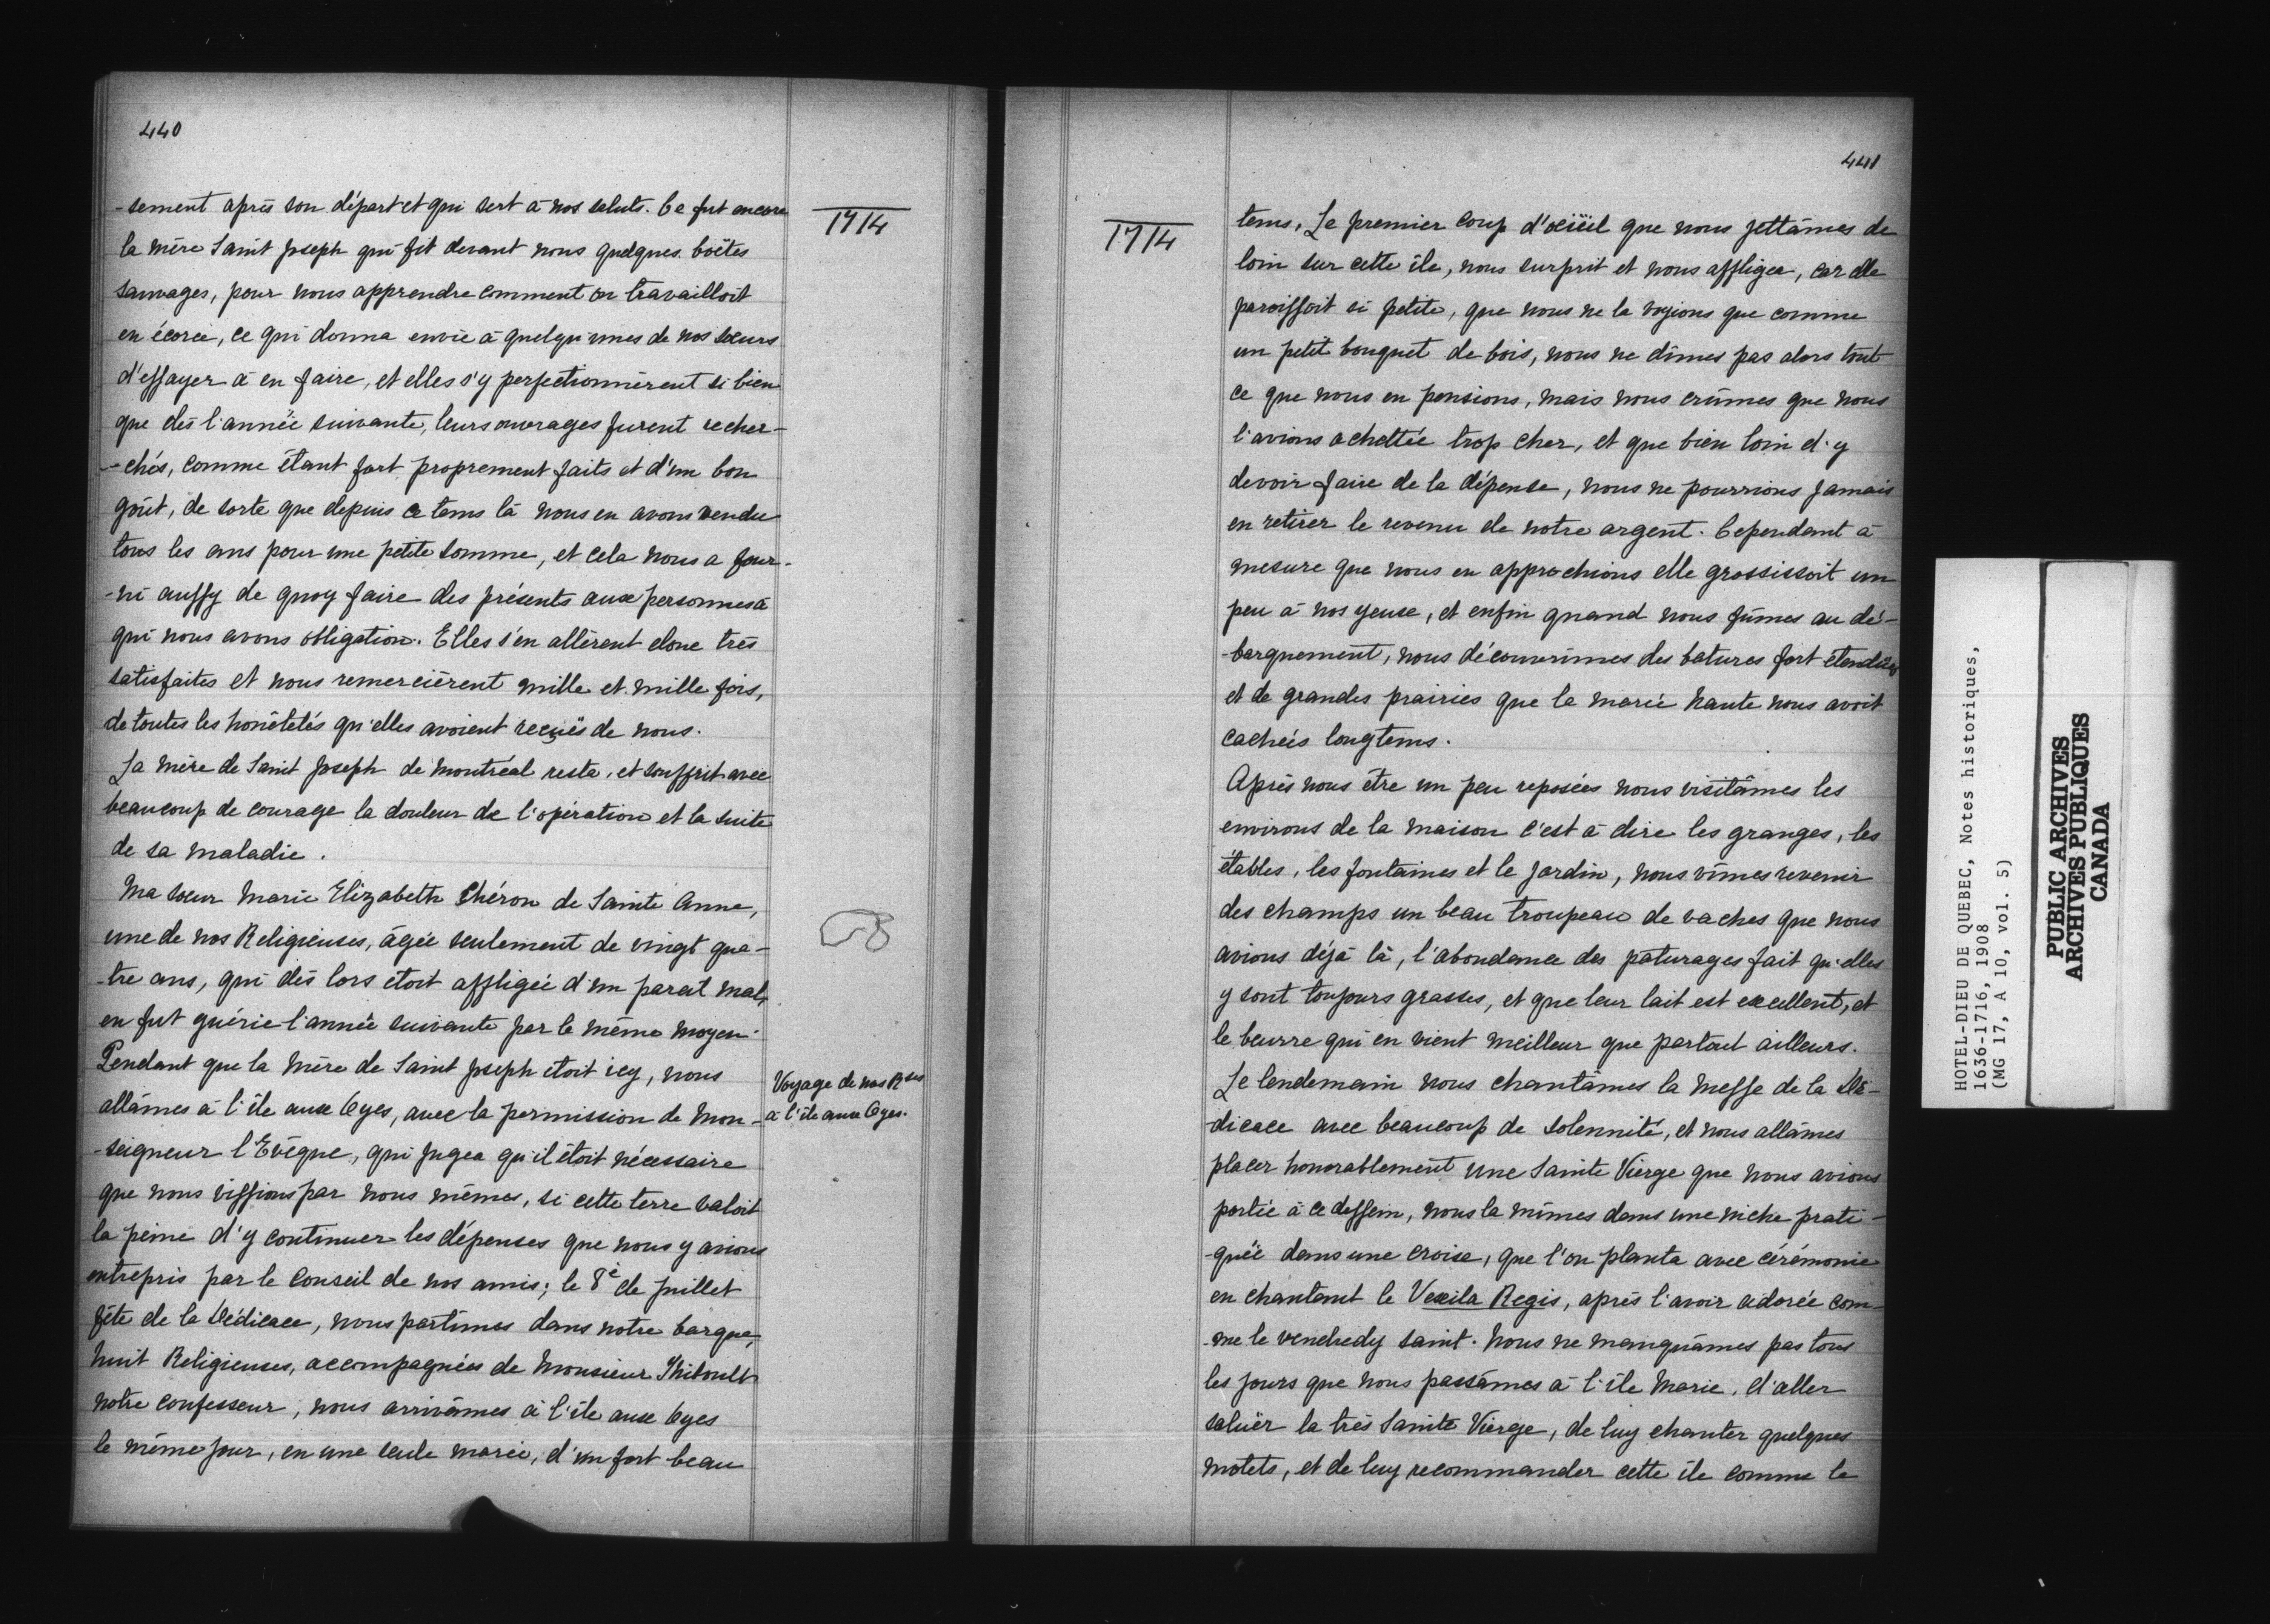 440
-sement après son départ et qui sert à nos saluts. Ce fut encore
la mère Saint Joseph qui fit devant nous quelques boëtes
sauvages, pour nous apprendre comment on travailloit
en écorce, ce qui donna envie à quelqu'unes de nos sœurs
d'essayer à en faire, et elles s'y perfectionnèrent si bien
que dès l'année suivante, leurs ouvrages furent recher-
-chés, comme étant fort proprement faits et d'un bon
goût, de sorte que depuis ce tems là nous en avons vendu
tous les ans pour une petite somme, et cela nous a four-
-ni aussy de quoy faire des présents aux personnes à
qui nous avons obligation. Elles s'en allèrent donc très
satisfaites et nous remercièrent mille et mille fois,
de toutes les honêtetés qu'elles avoient reçuës de nous.
La mère de Saint Joseph de Montréal resta, et souffrit avec
beaucoup de courage la douleur de l'opération et la suite
de sa maladie.
Ma sœur Marie Elizabeth Chéron de Sainte Anne,
une de nos Religieuses, âgée seulement de vingt qua-
-tre ans, qui dès lors étoit affligée d'un pareil mal,
en fut guérie l'année suivante par le même moyen.
Pendant que la Mère de Saint Joseph étoit icy, nous
allâmes à l'île aux Oyes, avec la permission de Mon-
-seigneur l'Evêque, qui jugea qu'il étoit nécessaire
que nous vissions par nous mêmes, si cette terre valoit
la peine d'y continuer les dépenses que nous y avions
entrepris par le conseil de nos amis; le 8e de Juillet
fête de la Dédicace, nous partîmes dans notre barque,
huit Religieuses, accompagnées de Monsieur Thiboult
notre confesseur, nous arrivâmes à l'île aux Oyes
le même jour, en une seule marée, d'un fort beau
1714
Voyage de nos Rses
à l'île aux Oyes.
441
1714
tems. Le premier coup d'œiiil que nous jettâmes de
loin sur cette île, nous surprit et nous affligea, car elle
paroissoit si petite, que nous ne la voyions que comme
un petit bouquet de bois, nous ne dîmes pas alors tout
ce que nous en pensions, mais nous crûmes que nous
l'avions achettée trop cher, et que bien loin d'y
devoir faire de la dépense, nous ne pourrions jamais
en retirer le revenu de notre argent. Cependant à
mesure que nous en approchions elle grossissoit un
peu à nos yeux, et enfin quand nous fûmes au dé-
-barquement, nous découvrîmes des batures fort étenduës
et de grandes prairies que la marée haute nous avoit
cachées longtems.
Après nous être un peu reposées nous visitâmes les
environs de la maison c'est à dire les granges, les
étables, les fontaines et le jardin, nous vîmes revenir
des champs un beau troupeau de vaches que nous
avions déjà là, l'abondance des paturages fait qu'elles
y sont toujours grasses, et que leur lait est excellent, et
le beurre qui en vient meilleur que partout ailleurs.
Le lendemain nous chantâmes la Messe de la Dé-
-dicace avec beaucoup de solennité, et nous allâmes
placer honorablement une Sainte Vierge que nous avions
portée à ce dessein, nous la mîmes dans une niche prati-
-quée dans une croix, que l'on planta avec cérémonie
en chantant le Vexila Regis, après l'avoir adorée com-
-me le vendredy saint. Nous ne manquâmes pas tous
les jours que nous passâmes à l'île Marie, d'aller
saluër la très Sainte Vierge, de luy chanter quelques
motets, et de luy recommander cette île comme le
HOTEL-DIEU DE QUEBEC, Notes historiques,
1636-1716, 1908
(MG 17, A 10, vol. 5)
PUBLIC ARCHIVES
ARCHIVES PUBLIQUES
CANADA